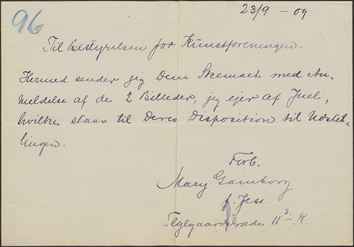 96
23/9 - 09
Til Bestyrelsen for Kunstforeningen.
Hermed sender jeg Dem Skemaet med An-
meldelse af de 2 Billeder, jeg ejer af Juel,
hvilke staar til Deres Disposition til Udstil-
lingen.
Forb.
Mary Gamborg
f. Jess